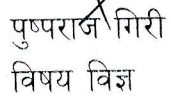 पुष्पराज गिरी
विषय विज्ञ